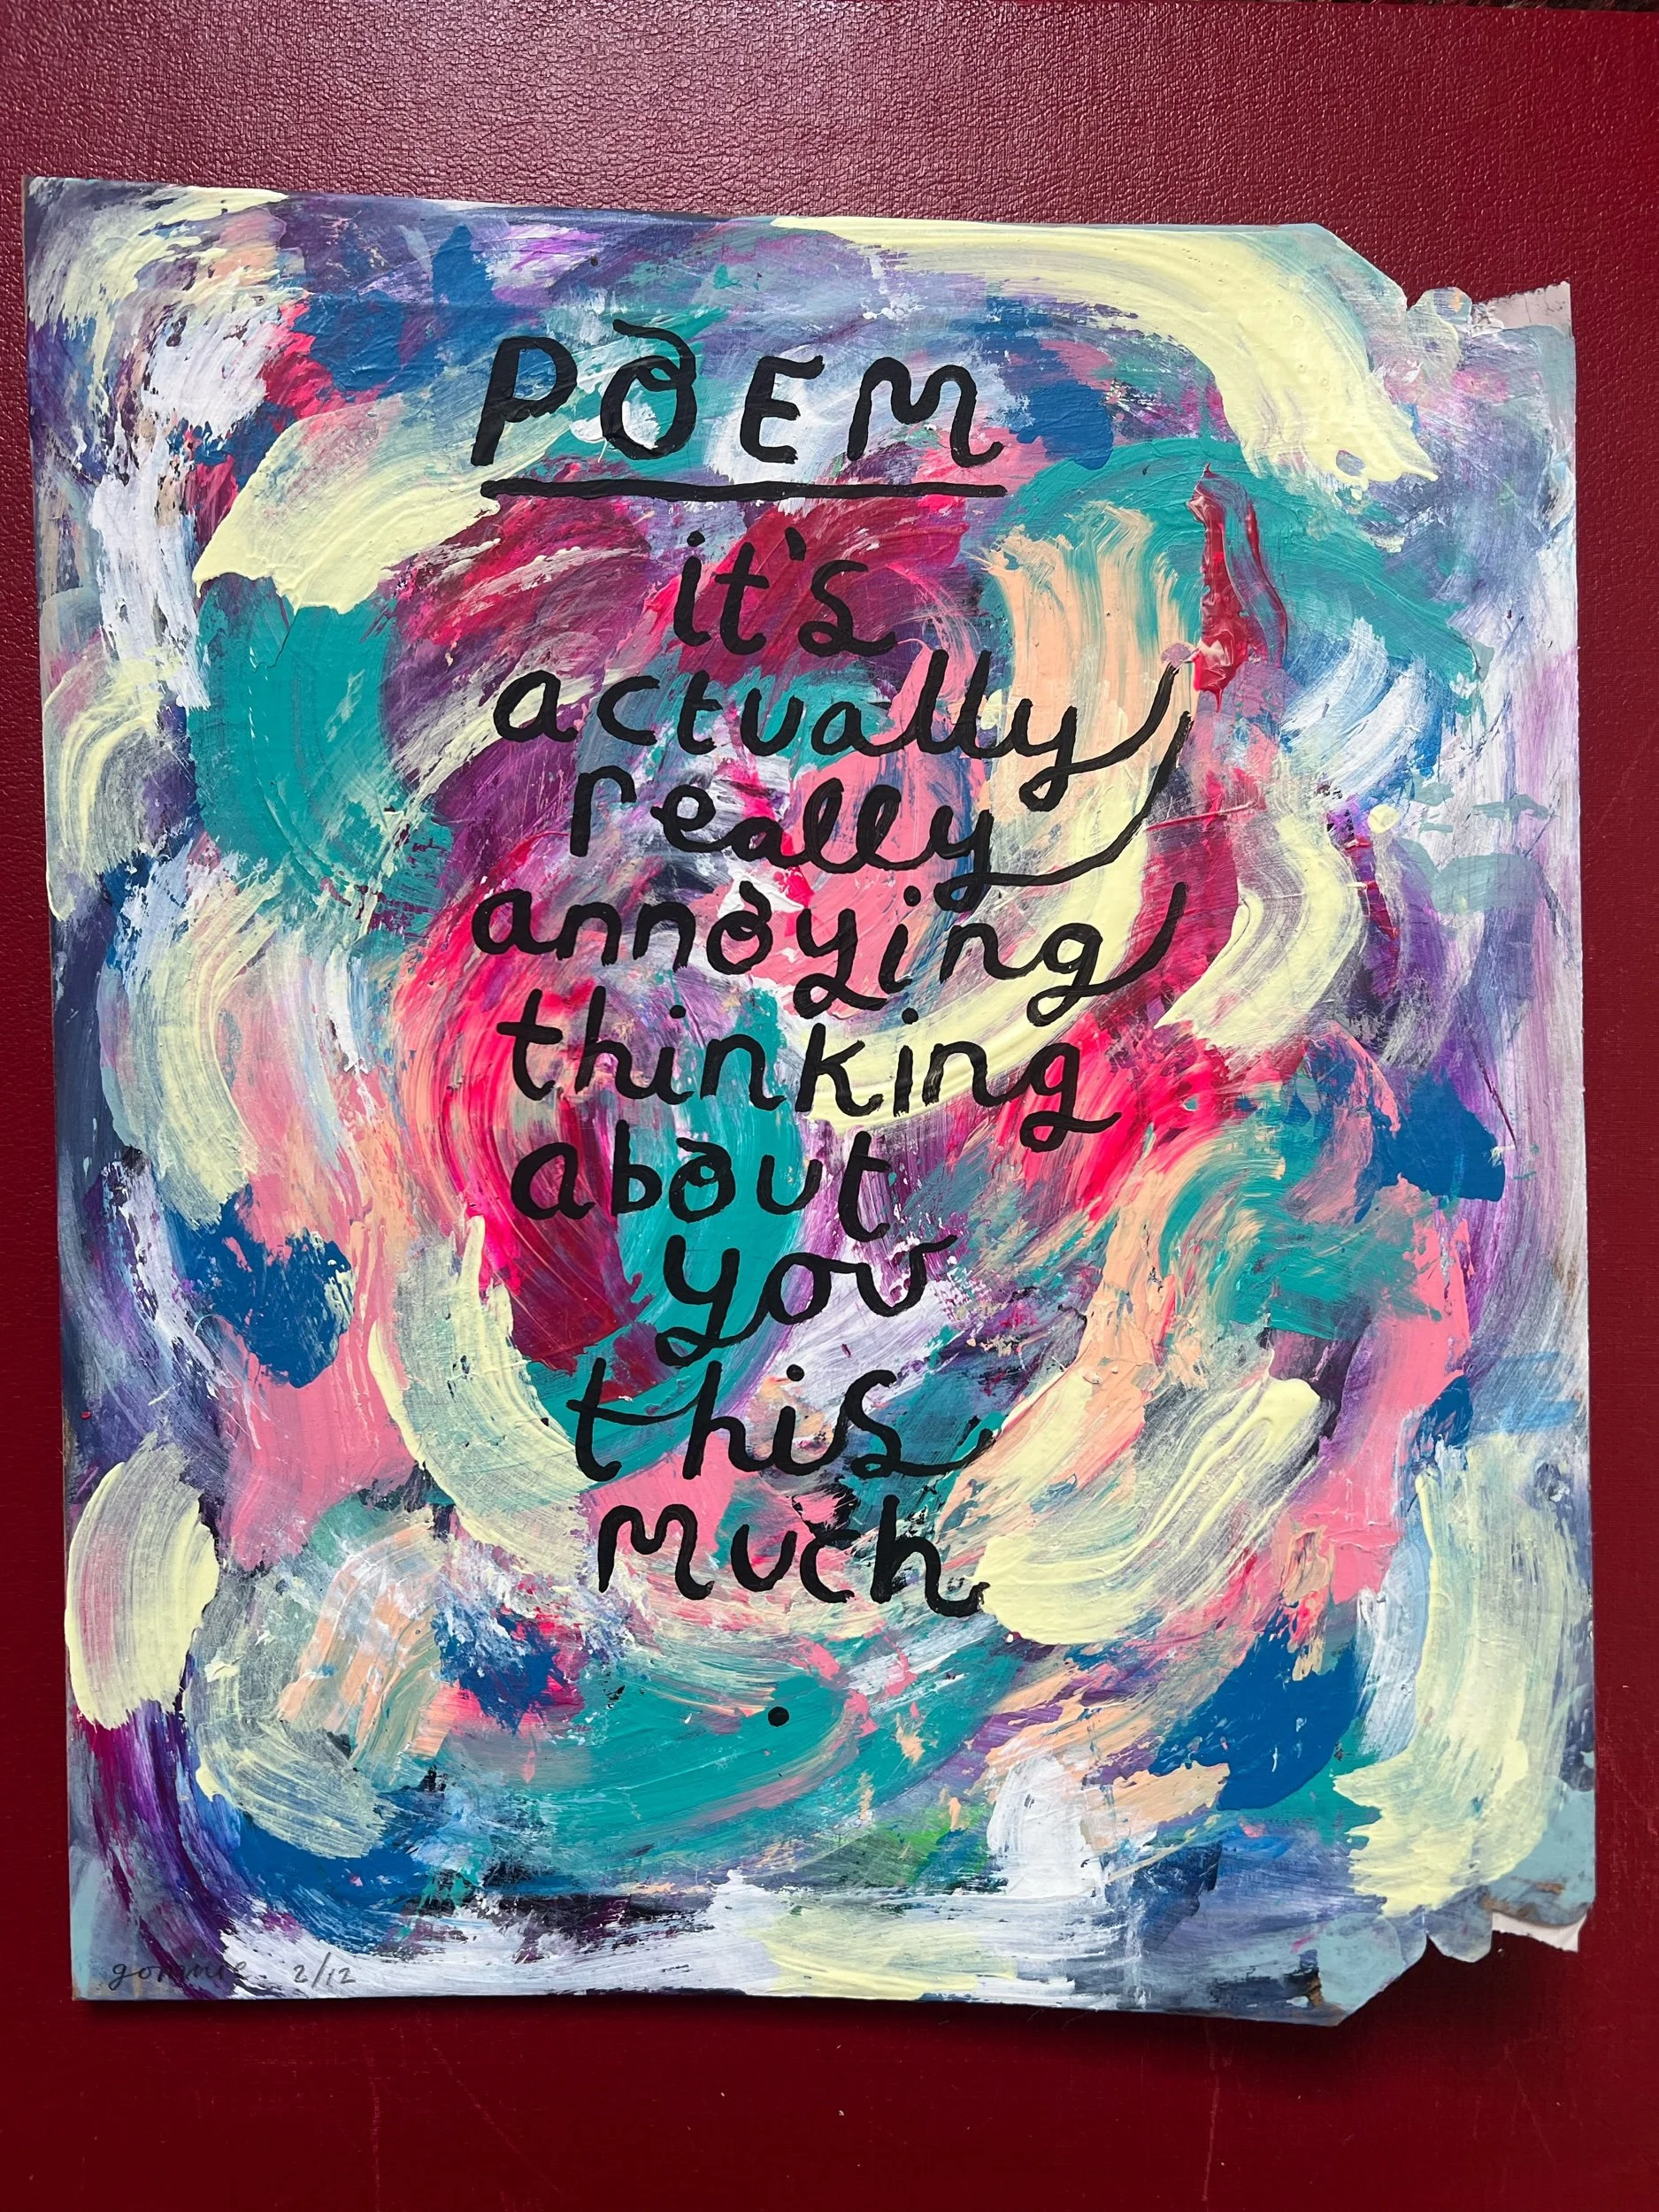 POEM
it's
actually
really
annoying
thinking
about
you
this
much
gommie 2/12